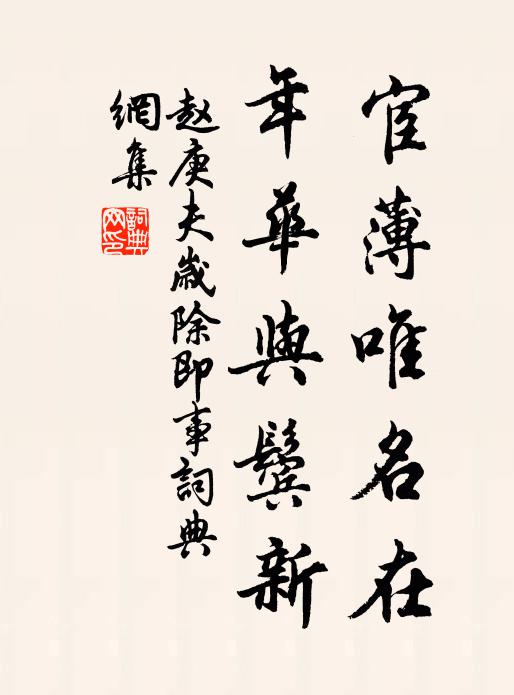 宦薄唯名在
年華與鬢新
赵庚夫歲除即事詞典
網集
詞典
网印